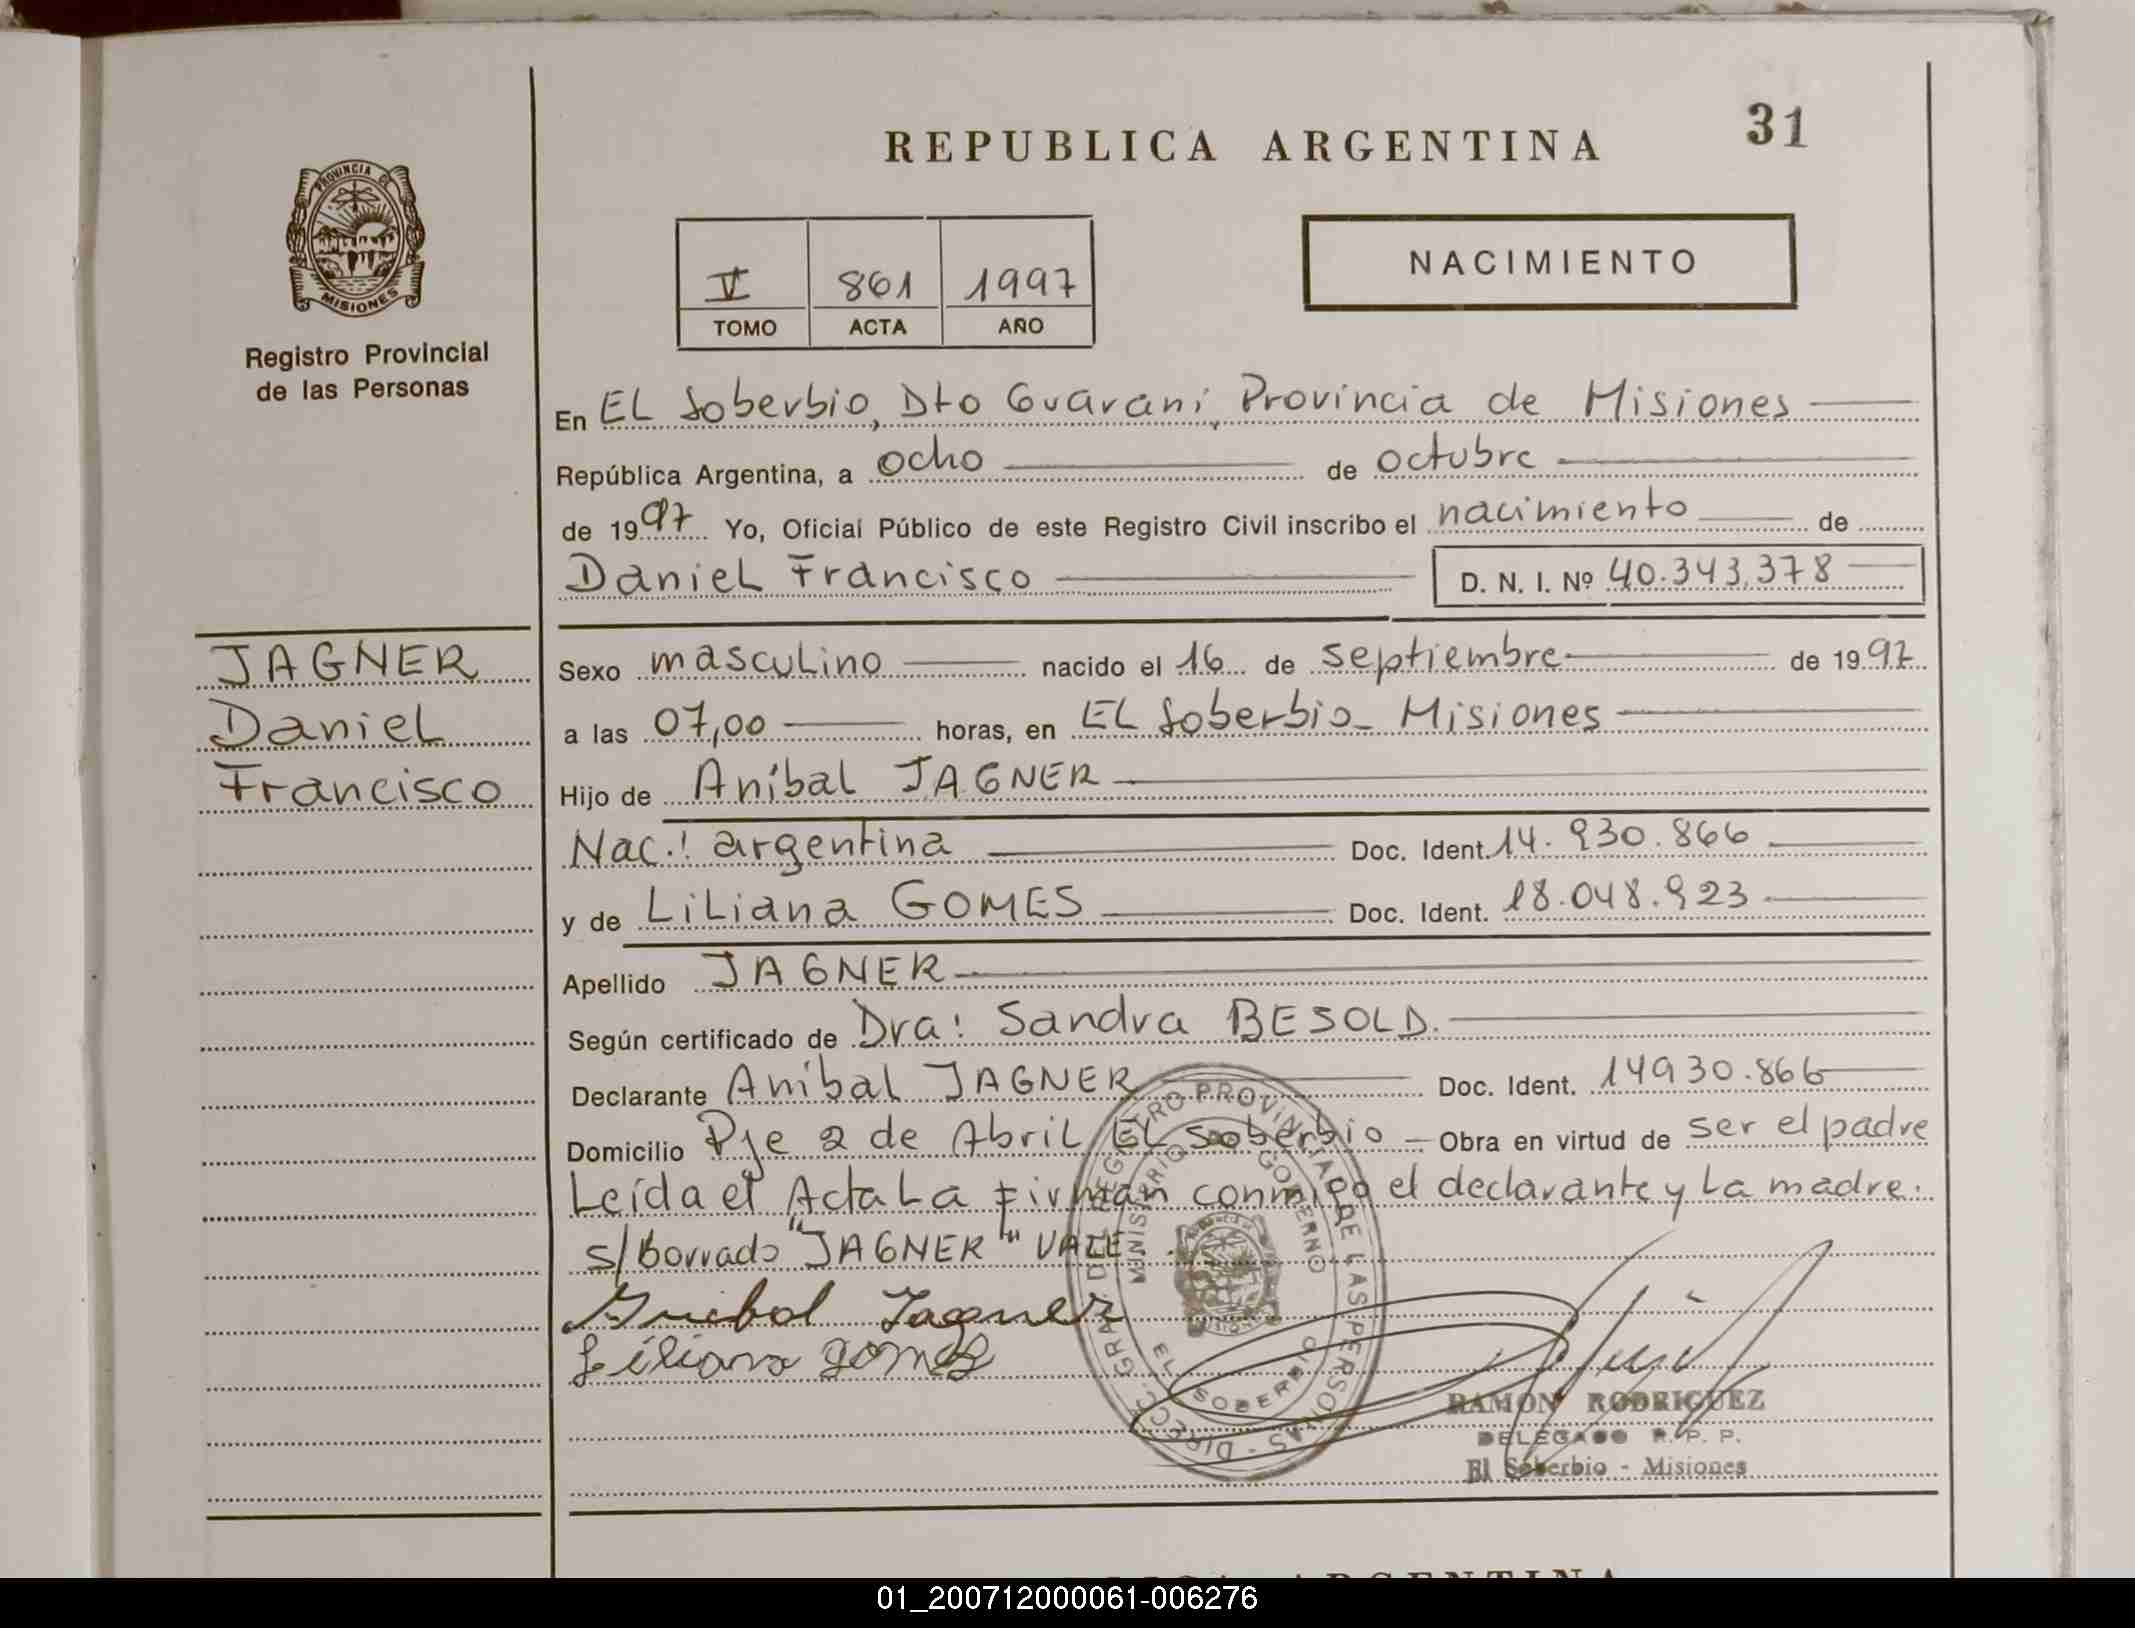 REPUBLICA ARGENTINA
31
PROVINCIA DE
MISIONES
Registro Provincial
de las Personas
V 861 1997
TOMO ACTA AÑO
NACIMIENTO
En EL Soberbio, Dto Guarani, Provincia de Misiones
República Argentina, a ocho de octubre
de 1997 Yo, Oficial Público de este Registro Civil inscribo el nacimiento de
Daniel Francisco D. N. I. Nº 40.343.378
JAGNER
Daniel
Francisco
Sexo masculino nacido el 16 de septiembre de 1997
a las 07,00 horas, en EL Soberbio - Misiones
Hijo de Aníbal JAGNER
Nac.: argentina Doc. Ident. 14.930.866
y de Liliana GOMES Doc. Ident. 18.048.923
Apellido JAGNER
Según certificado de Dra: Sandra BESOLD.
Declarante Aníbal JAGNER Doc. Ident. 14930.866
Domicilio Pje 2 de Abril EL Soberbio - Obra en virtud de ser el padre
Leída el Acta La firman conmigo el declarante y La madre.
s/Borrado "JAGNER" VALE.
Anibal Jagner
Liliana gomes
DIRECC. GRAL. DEL REGISTRO PROVINCIAL DE LAS PERSONAS
MINISTERIO DE GOBIERNO
EL SOBERBIO
RAMON RODRIGUEZ
DELEGADO R. P. P.
El Soberbio - Misiones
REPUBLICA ARGENTINA
01_200712000061-006276